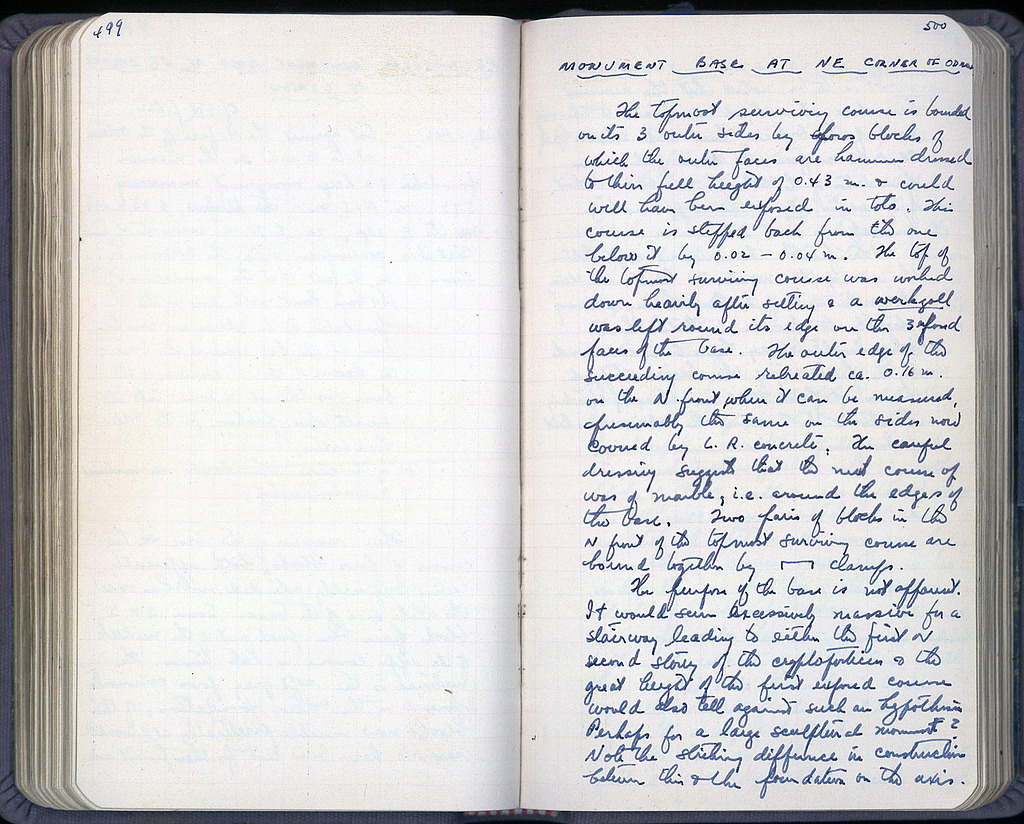 499
500
MONUMENT BASE AT NE CORNER OF ODEION
The topmost surviving course is bounded
on its 3 outer sides by poros blocks of
which the outer faces are hammer dressed
to their full height of 0.43 m. & could
well have been exposed in toto. This
course is stepped back from the one
below it by 0.02 – 0.04 m. The top of
the topmost surviving course was worked
down heavily after setting & a werkzoll
was left round its edge on the 3 exposed
faces of the base. The outer edge of the
succeeding course retreated ca. 0.16 m.
on the N. front where it can be measured,
presumably the same on the sides now
covered by L. R. concrete. The careful
dressing suggests that the next course
was of marble, i.e. around the edges of
the base. Two pairs of blocks in the
N front of the topmost surviving course are
bound together by clamps.
The purpose of the base is not apparent.
It would seem excessively massive for a
stairway leading to either the first or
second story of the cryptoporticus & the
great height of the first exposed course
would also tell against such an hypothesis
Perhaps for a large sculptural monument?
Note the striking difference in construction
between this & the foundation on the axis.